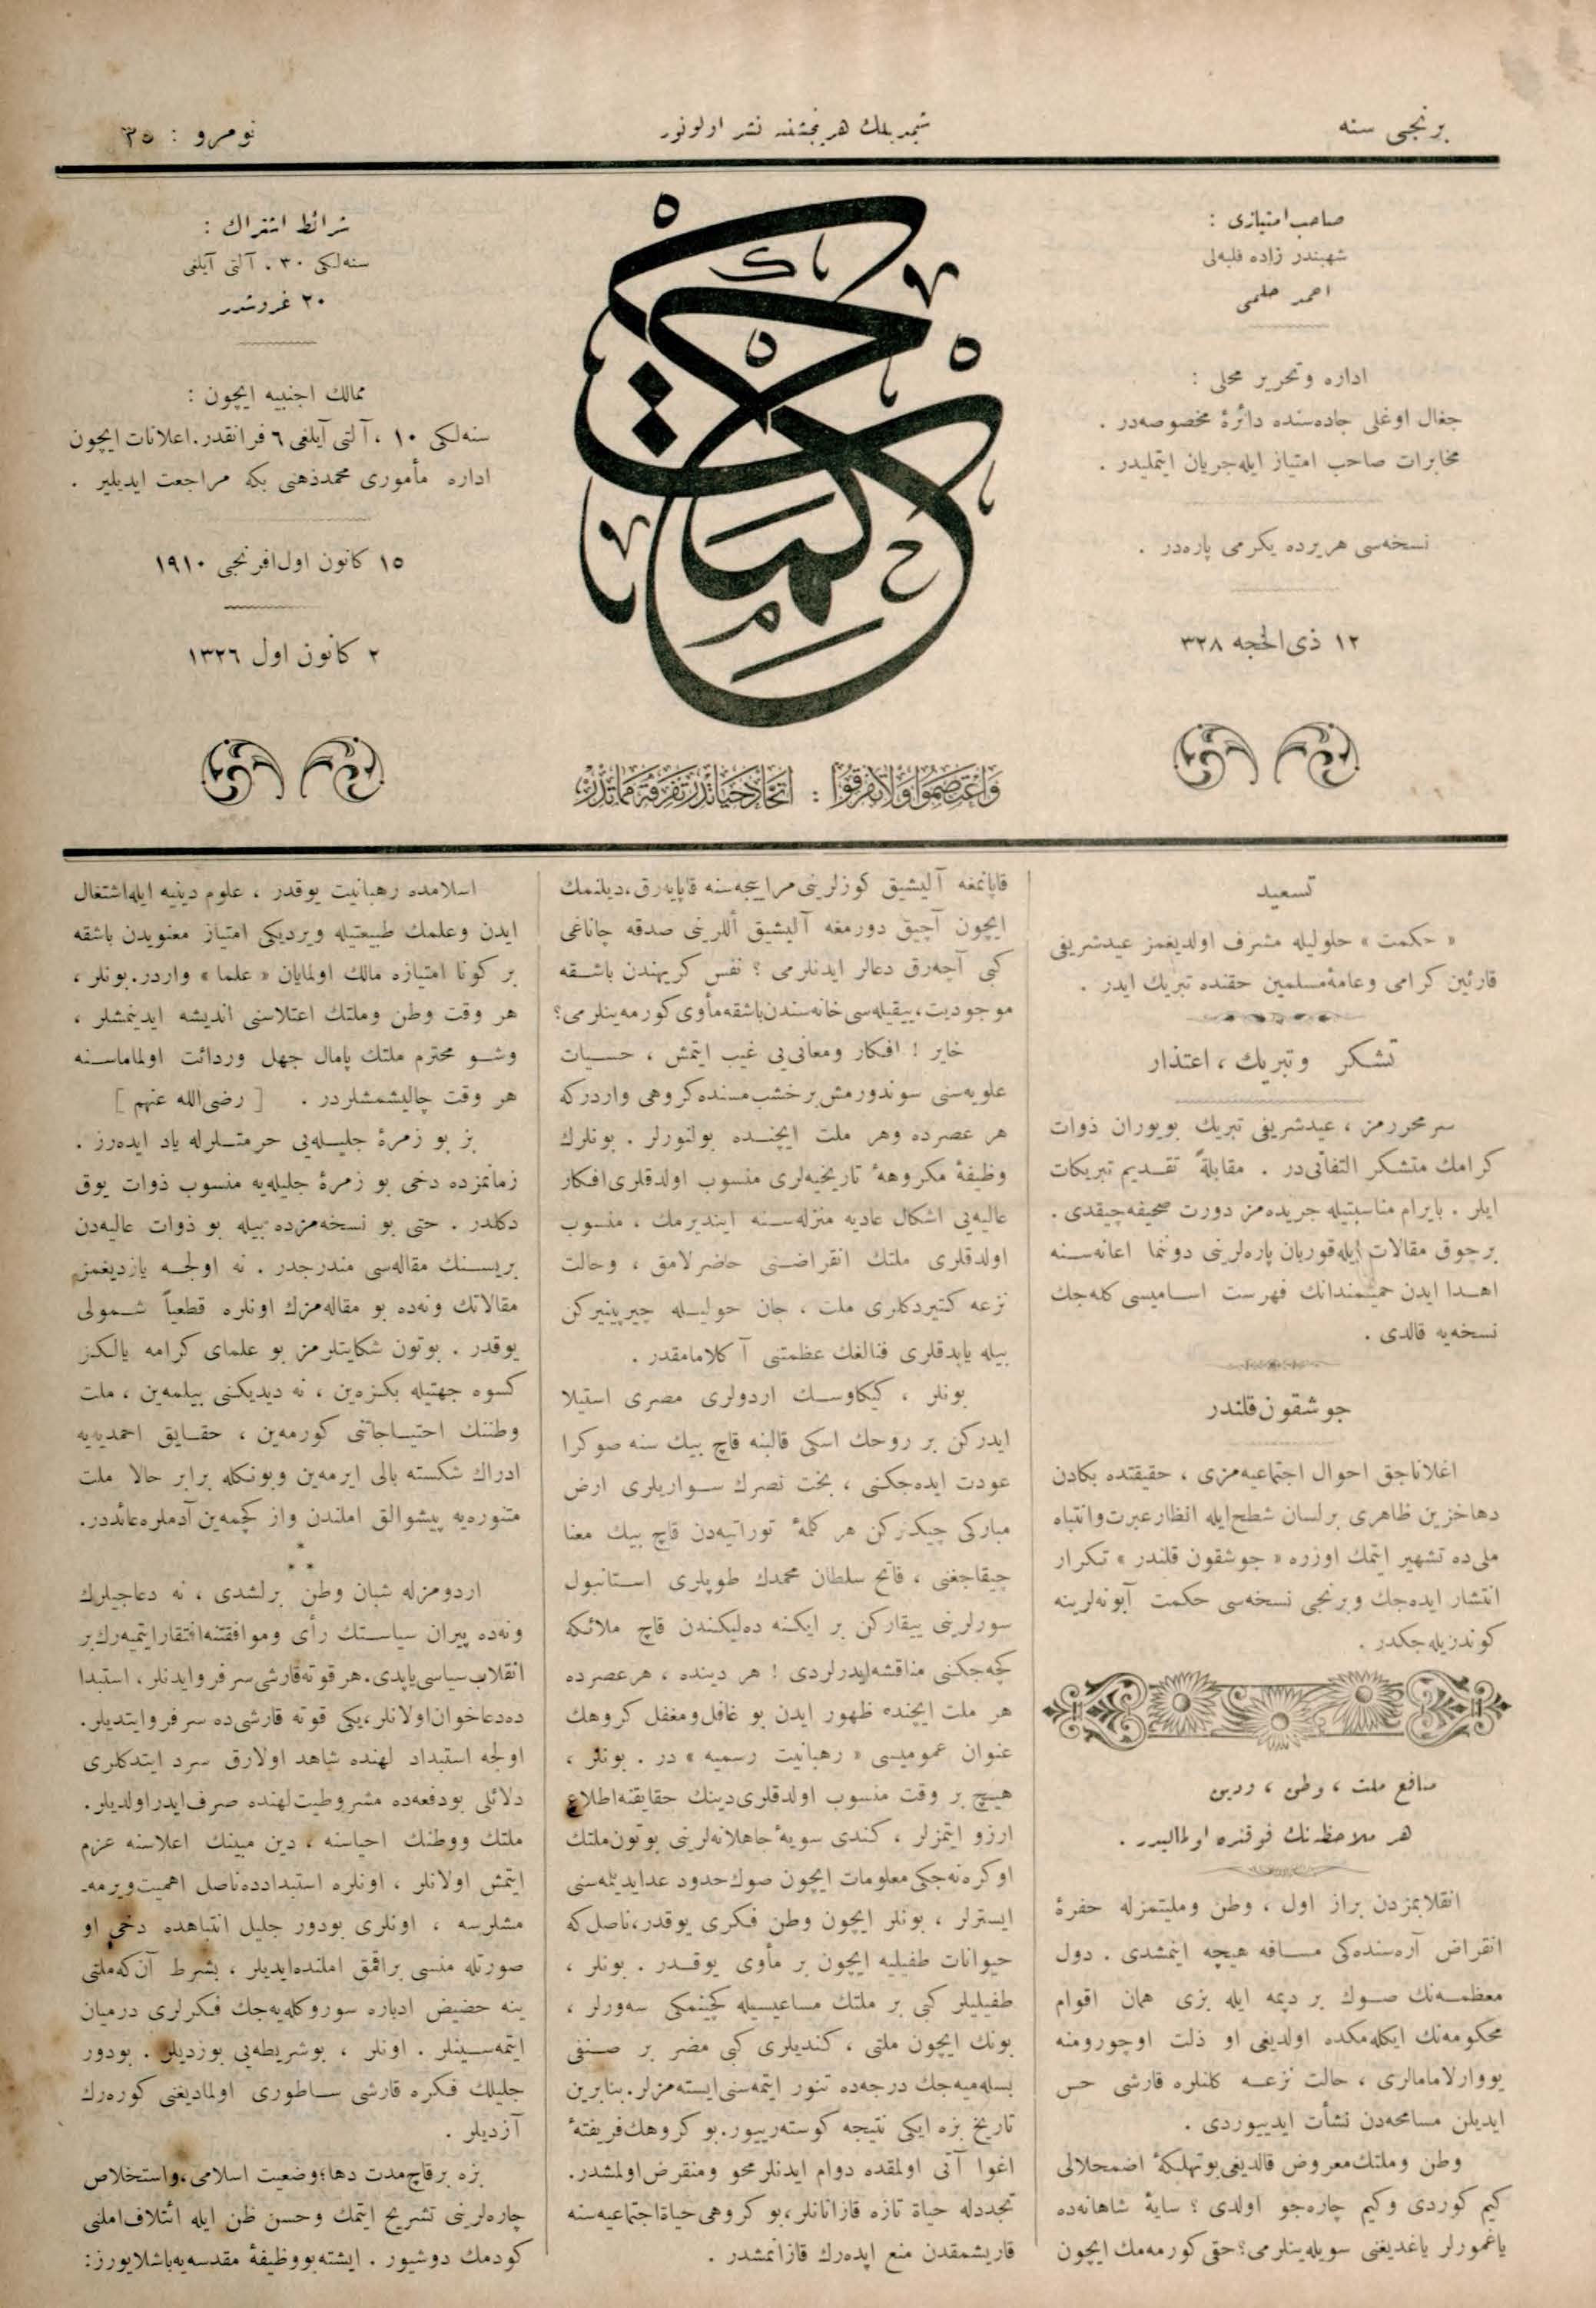 برنجی سنه
شیمدیلك هر پنجشنبه نشر اولونور
نومرو : ٣٥
صاحب امتیازی :
شهبندر زاده فلبه‌لی
احمد حلمی
اداره و تحریر محلی :
جغال اوغلی جاده‌سنده دائرهٔ مخصوصه‌در .
مخابرات صاحب امتیاز ایله جریان ایتملیدر .
نسخه‌سی هر یرده یکرمی پاره‌در .
١٢ ذی الحجه ٣٢٨
حکمت
وَاعْتَصِمُوا وَلَاتَفَرَّقُوا : اتحاد حیاتدر تفرقه مماتدر
شرائط اشتراك :
سنه‌لکی ٣٠ ، آلتی آیلغی
٢٠ غروشدر
ممالك اجنبیه ایچون :
سنه‌لکی ١٠ ، آلتی آیلغی ٦ فرانقدر . اعلانات ایچون
اداره مأموری محمد ذهنی بکه مراجعت ایدیلیر .
١٥ کانون اول افرنجی ١٩١٠
٢ کانون اول ١٣٢٦
تسعید
« حکمت » حلولیله مشرف اولدیغمز عید شریفی
قارئین کرامی و عامهٔ مسلمین حقنده تبریك ایدر .
تشکر و تبریك ، اعتذار
سر محررمز ، عید شریفی تبریك بویوران ذوات
کرامك متشکر التفاتی‌در . مقابلةً تقدیم تبریکات
ایلر . بایرام مناسبتیله جریده‌مز دورت صحیفه چیقدی .
بر چوق مقالات ایله قوربان پاره‌لرینی دوننما اعانه‌سنه
اهدا ایدن حمیتمندانك فهرست اسامیسی کله‌جك
نسخه‌یه قالدی .
جوشقون قلندر
اغلاناجق احوال اجتماعیه‌مزی ، حقیقتده بکادن
دها حزین ظاهری بر لسان شطح ایله انظار عبرت و انتباه
ملی‌ده تشهیر ایتمك اوزره « جوشقون قلندر » تکرار
انتشار ایده‌جك و برنجی نسخه‌سی حکمت آبونه‌لرینه
کوندریله‌جکدر .
منافع ملت ، وطن ، و دین
هر ملاحظه‌نك فوقنده اولمالیدر .
انقلابمزدن براز اول ، وطن و ملیتمزله حفرهٔ
انقراض آره‌سنده‌کی مسافه هیچه اینمشدی . دول
معظمه‌نك صوك بر دپمه ایله بزی همان اقوام
محکومه‌نك ایکله‌مکده اولدیغی او ذلت اوچورومنه
یووارلامامالری ، حالت نزعه کلنلره قارشی حس
ایدیلن مسامحه‌دن نشأت ایدییوردی .
وطن و ملتك معروض قالدیغی بو تهلکهٔ اضمحلالی
کیم کوردی و کیم چاره‌جو اولدی ؟ سایهٔ شاهانه‌ده
یاغمورلر یاغدیغنی سویله‌ینلرمی ؟ حقی کورمه‌مك ایچون
قاپانمغه آلیشیق کوزلرینی مراییجه‌سنه قاپایه‌رق ، دیلنمك
ایچون آچیق دورمغه آلیشیق أللرینی صدقه چاناغی
کبی آچه‌رق دعالر ایدنلرمی ؟ نفس کریهندن باشقه
موجودیت ، ییقیله‌سی خانه‌سندن باشقه مأوی کورمه‌ینلرمی ؟
خایر ! افکار و معانی‌یی غیب ایتمش ، حسیات
علویه‌سنی سوندورمش بر خشب مسنده کروهی واردرکه
هر عصرده و هر ملت ایچنده بولنورلر . بونلرك
وظیفهٔ مکروههٔ تاریخیه‌لری منسوب اولدقلری افکار
عالیه‌یی اشکال عادیه منزله‌سنه ایندیرمك ، منسوب
اولدقلری ملتك انقراضنی حاضرلامق ، و حالت
نزعه کتیردکلری ملت ، جان حولیله چیرپینیرکن
بیله یاپدقلری فنالغك عظمتنی آکلامامقدر .
بونلر ، کیکاوسك اردولری مصری استیلا
ایدرکن بر روحك اسکی قالبنه قاچ بیك سنه صوکرا
عودت ایده‌جکنی ، بخت نصرك سواریلری ارض
مبارکی چیکنرکن هر کلمهٔ توراتیه‌دن قاچ بیك معنا
چیقاجغنی ، فاتح سلطان محمدك طوپلری استانبول
سورلرینی ییقارکن بر ایکنه ده‌لیکندن قاچ ملائکه
کچه‌جکنی مناقشه ایدرلردی ! هر دینده ، هر عصرده
هر ملت ایچنده ظهور ایدن بو غافل و مغفل کروهك
عنوان عمومیسی « رهبانیت رسمیه » در . بونلر ،
هیچ بر وقت منسوب اولدقلری دینك حقایقنه اطلاع
ارزو ایتمزلر ، کندی سویهٔ جاهلانه‌لرینی بوتون ملتك
اوکره‌نه‌جکی معلومات ایچون صوك حدود عد ایدیلمه‌سنی
ایسترلر ، بونلر ایچون وطن فکری یوقدر ، ناصل که
حیوانات طفیلیه ایچون بر مأوی یوقدر . بونلر ،
طفیلیلر کبی بر ملتك مساعیسیله کچینمکی سه‌ورلر ،
بونك ایچون ملتی ، کندیلری کبی مضر بر صنفی
بسله‌میه‌جك درجه‌ده تنور ایتمه‌سنی ایسته‌مزلر . بنابرین
تاریخ بزه ایکی نتیجه کوسته‌رییور . بو کروهك فریفتهٔ
اغوا آتی اولمقده دوام ایدنلر محو و منقرض اولمشدر .
تجددله حیاة تازه قازانانلر ، بو کروهی حیاة اجتماعیه‌سنه
قاریشمقدن منع ایده‌رك قازانمشدر .
اسلامده رهبانیت یوقدر ، علوم دینیه ایله اشتغال
ایدن و علمك طبیعتیله ویردیکی امتیاز معنویدن باشقه
بر کونا امتیازه مالك اولمایان « علما » واردر . بونلر ،
هر وقت وطن و ملتك اعتلاسنی اندیشه ایدینمشلر ،
و شو محترم ملتك پامال جهل و ردائت اولماماسنه
هر وقت چالیشمشلردر . [ رضی الله عنهم ]
بز بو زمرهٔ جلیله‌یی حرمتلرله یاد ایده‌رز .
زمانمزده دخی بو زمرهٔ جلیله‌یه منسوب ذوات یوق
دکلدر . حتی بو نسخه‌مزده بیله بو ذوات عالیه‌دن
بریسنك مقاله‌سی مندرجدر . نه اولجه یازدیغمز
مقالاتك و نه‌ده بو مقاله‌مزك اونلره قطعیاً شمولی
یوقدر . بوتون شکایتلرمز بو علمای کرامه یالکز
کسوه جهتیله بکزه‌ین ، نه دیدیکنی بیلمه‌ین ، ملت
وطننك احتیاجاتنی کورمه‌ین ، حقایق احمدیه‌یه
ادراك شکسته بالی ایرمه‌ین و بونکله برابر حالا ملت
متنوره‌یه پیشوالق املندن واز کچمه‌ین آدملره عائددر .
*
* *
اردومزله شبان وطن برلشدی ، نه دعاجیلرك
و نه‌ده پیران سیاستك رأی و موافقتنه افتقار ایتمیه‌رك بر
انقلاب سیاسی یاپدی . هر قوته قارشی سرفرو ایدنلر ، استبدا
ده دعاخوان اولانلر ، یکی قوته قارشی‌ده سرفرو ایتدیلر .
اولجه استبداد لهنده شاهد اولارق سرد ایتدکلری
دلائلی بودفعه‌ده مشروطیت لهنده صرف ایدر اولدیلر .
ملتك و وطنك احیاسنه ، دین مبینك اعلاسنه عزم
ایتمش اولانلر ، اونلره استبدادده ناصل اهمیت ویرمه‌-
مشلرسه ، اونلری بودور جلیل انتباهده دخی او
صورتله منسی براقمق املنده‌ایدیلر ، بشرط آن که ملتی
ینه حضیض ادباره سوروکله‌یه‌جك فکرلری درمیان
ایتمه‌سینلر . اونلر ، بو شریطه‌یی بوزدیلر . بودور
جلیلك فکره قارشی ساطوری اولمادیغنی کوره‌رك
آزدیلر .
بزه بر قاچ مدت دها ؛ وضعیت اسلامی ، و استخلاص
چاره‌لرینی تشریح ایتمك و حسن ظن ایله ائتلاف املنی
کودمك دوشیور . ایشته بو وظیفهٔ مقدسه‌یه باشلایورز :